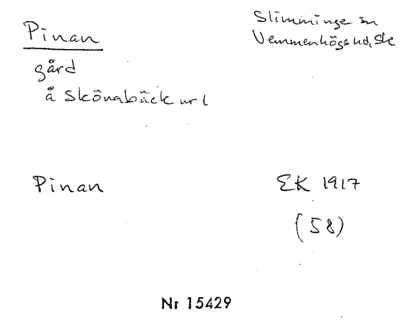 Pinan
Slimminge sn
Vemmenhögs hd, Sk
gård
å Skönabäck nr 1
Pinan
EK 1917
(58)
Nr 15429